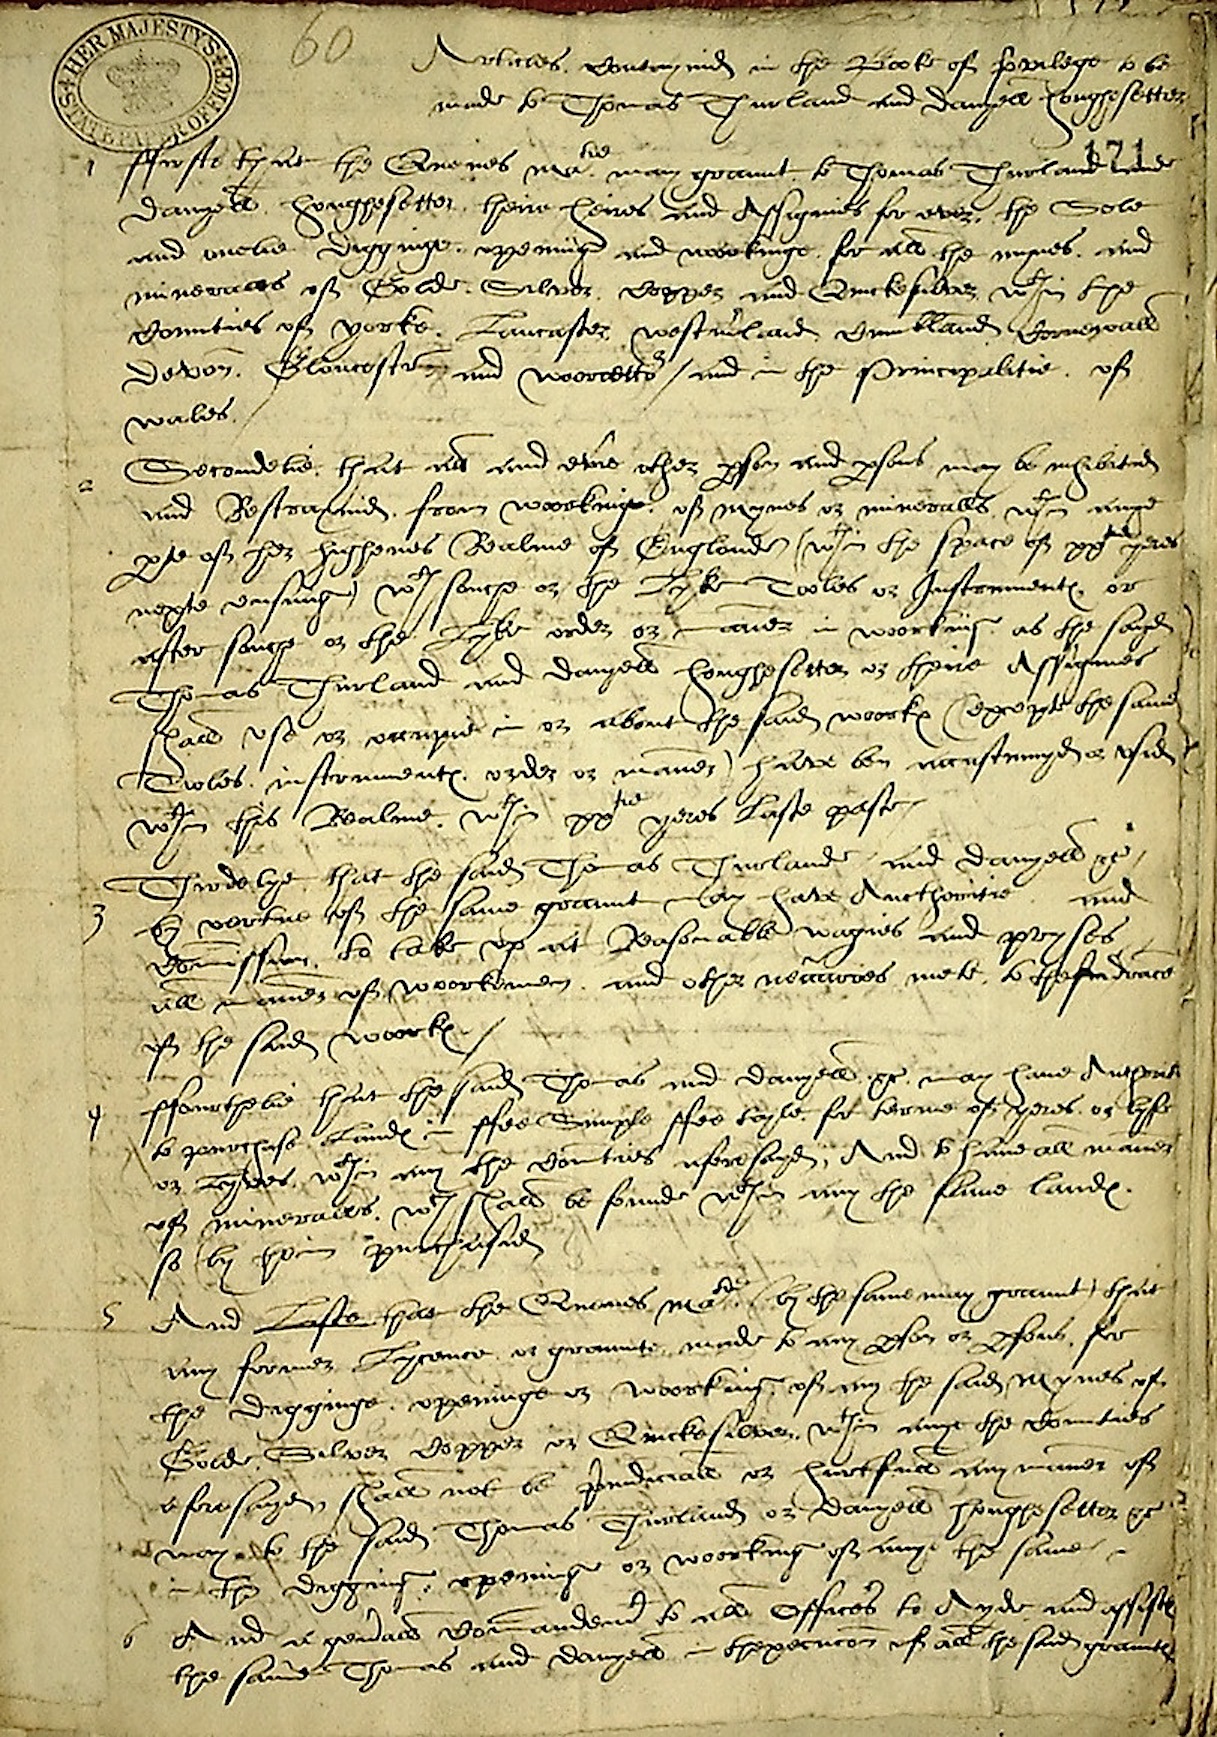 HER MAJESTYS STATE PAPER OFFICE
60
171
Articles conteynid in the Booke of privilege to be
made to Thomas Thurland and Danyell Houghesetter
1 ffirste that the Quenes matie may graunt to Thomas Thurland and
Danyell Houghesetter theire heires and Assignies for ever, the Sole
and onelie digginge openinge and workinge for all the mynes and
mineralles of Golde Silver Copper and Quickesilver wthin the
Counties of Yorke Lancaster westmland Cumbland Cornewall
Devon Gloucestre and woorcetor / and in the Principalitie of
wales
2 Secondelie that all and evrie other pson and psons may be inhibitid
and Restraynid from woorkinge of Mynes or mineralls wthin anye
pte of her highenes Realme of Englonde (wthin the space of xxtie yeres
nexte ensuing) wth souche or the Lyke Tooles or Instrumentes or
after souche or the Lyke order or maner in woorking as the sayd
Thomas Thurland and Danyell Houghesetter or theire Assignnes
shall use or occupie in or about the said woorkes (excepte the same
Tooles instrumentes order or maner) have ben accustumyd or usid
wthin this Realme wthin xxtie yeres Laste paste /
3 Thirdelye that the said Thomas Thurlande / and Danyell &c /
by vertue of the same graunt may have Aucthoritie and
Comission to take up at Reasonable wagies and pryses
all maner of woorkemen and other necessaries mete to the furderance
of the said woorkes /
4 ffourthelie that the said Thomas and Danyell &c may have Authoritie
to purchase Landes in ffee Simple ffee tayle for terme of yeres or lyffe
or lyves wthin any the Counties aforesayd, And to have all maner
of mineralles wch shall be founde wthin any the same landes
so by them purchasid
5 And Laste that the Quenes matie (by the same may graunt) that
any former Lycence or graunte made to any pson or psons for
the digginge openinge or woorking of any the said Mynes of
Golde Silver Copper or Quickesilver wthin anye the Counties
aforesayd, shall not be prjudiciall or hurtfull any maner of
way to the said Thomas Thurland or Danyell Houghesetter &c
in the digging, opening or woorking of anye the same
6 And a genrall Comandemt to all Officers to Ayde and assiste
the same Thomas and Danyell in thexecucon of all the said grauntes